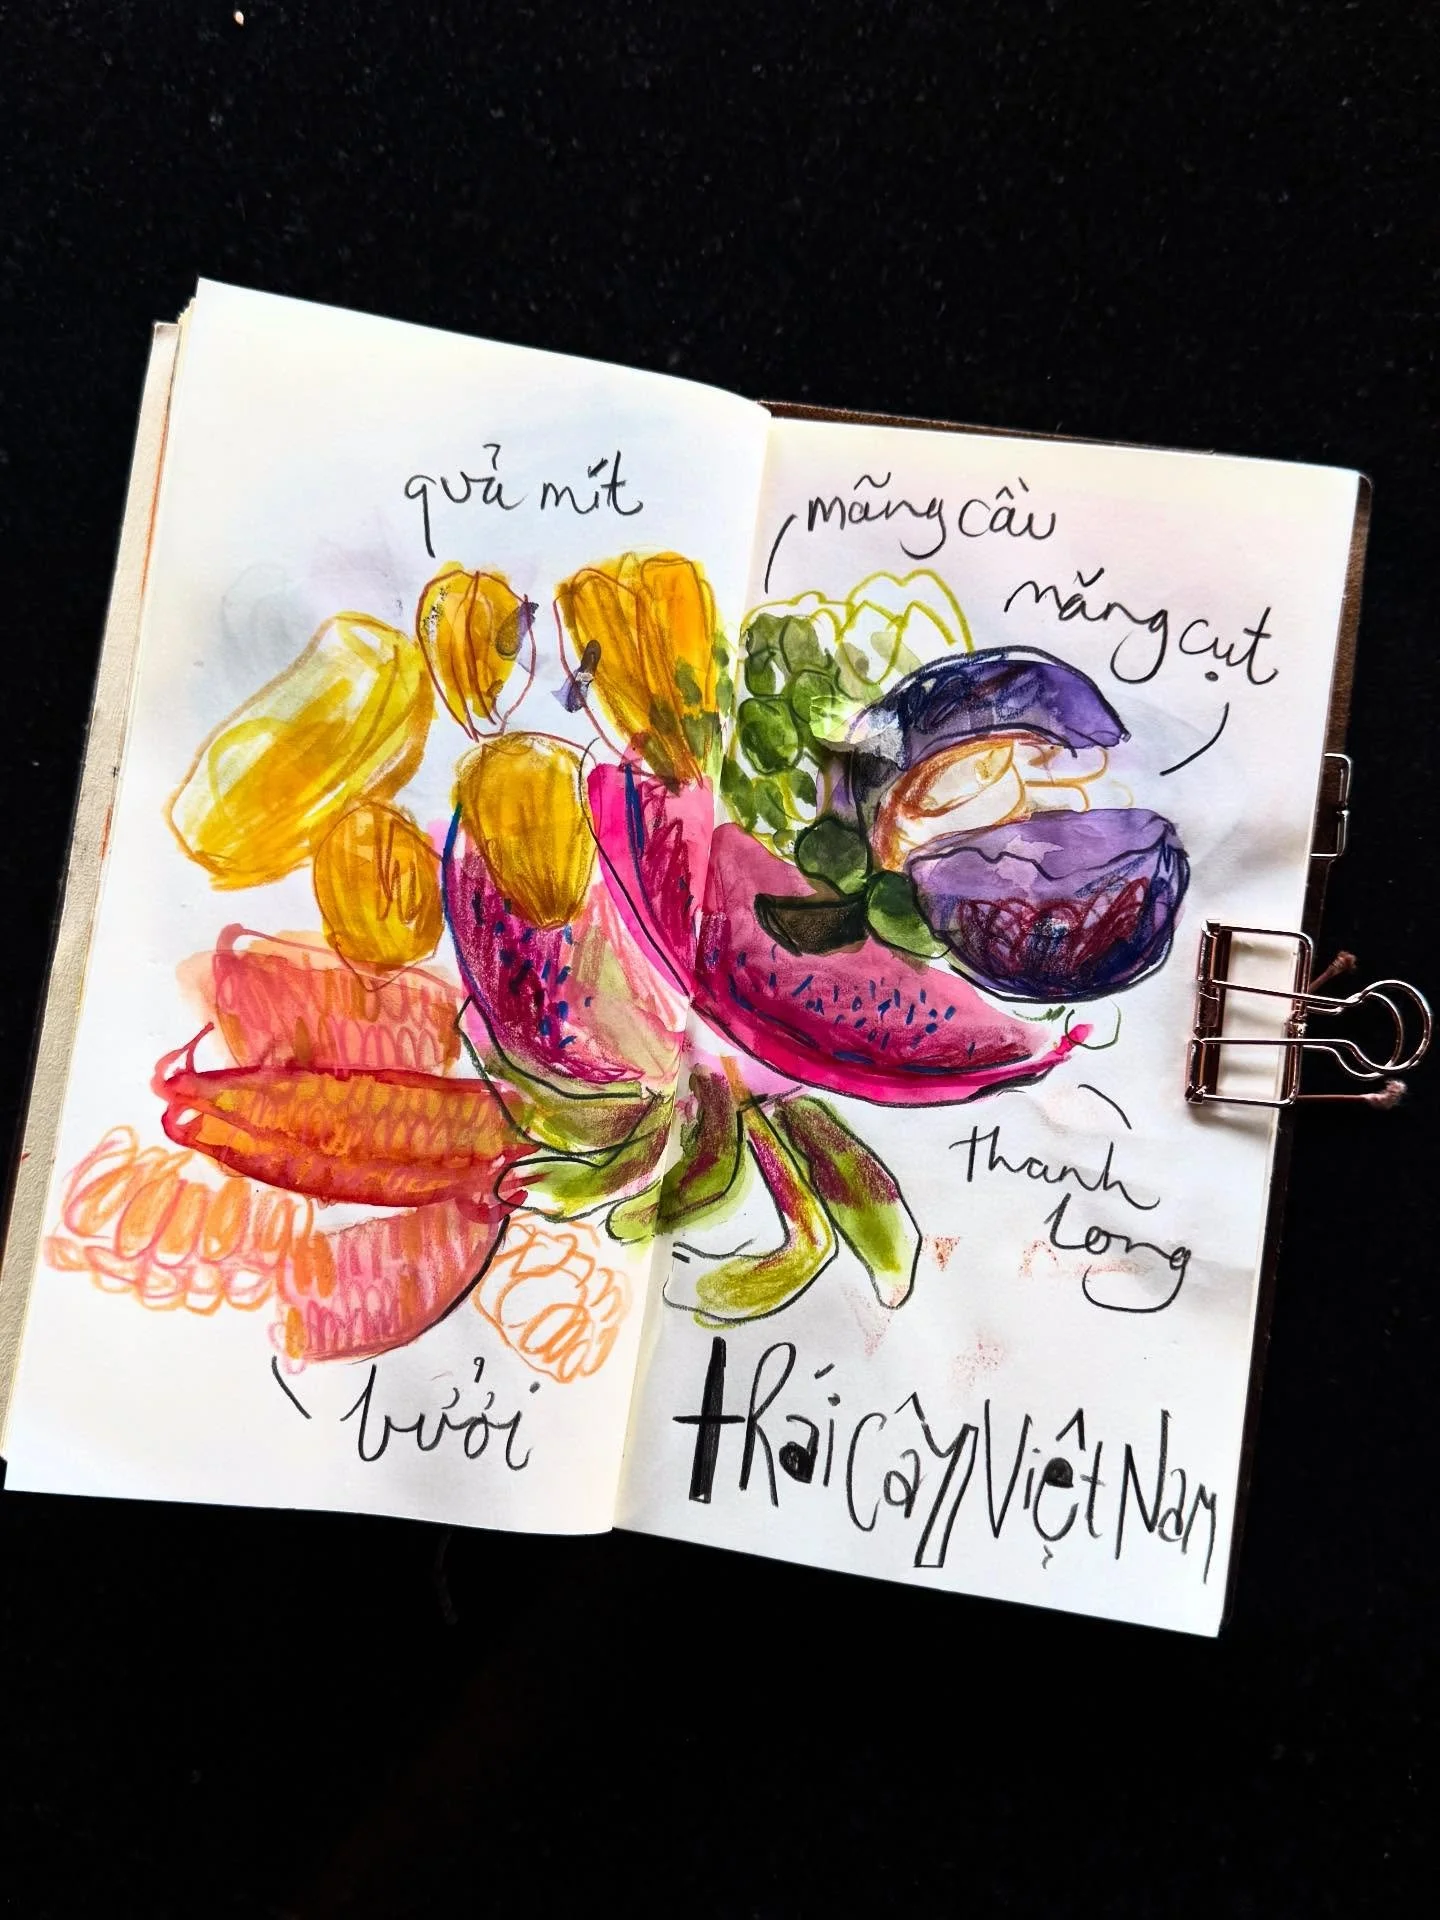 quả mít
mãng cầu
măng cụt
thanh
long
bưởi
thái cây Việt Nam